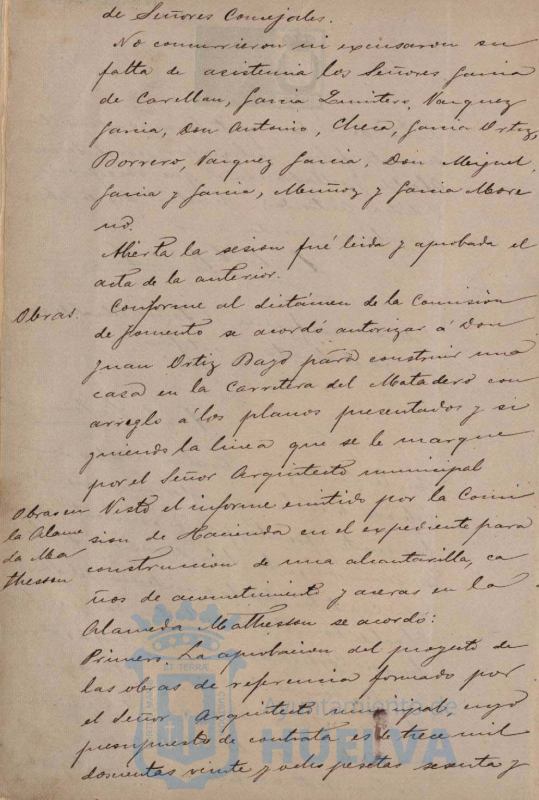 de Señores Concejales.
No concurrieron ni excusaron su
falta de asistencia los Señores Garcia
de Carellan, Garcia Quintero, Vazquez
Garcia, Don Antonio, Checa, Garcia Ortiz,
Borrero, Vazquez Garcia, Don Miguel,
Garcia y Garcia, Muñoz y Garcia More
no.
Abierta la sesion fué leida y aprobada el
acta de la anterior.
Obras. Conforme al dictámen de la Comision
de fomento se acordó autorizar á Don
Juan Ortiz Bayo para construir una
casa en la Carretera del Matadero con
arreglo á los planos presentados y si
guiendo la linea que se le marque
por el Señor Arquitecto municipal
Obras en la Alame da Ma thesson
Visto el informe emitido por la Comi
sion de Hacienda en el expediente para
construccion de una alcantarilla, ca
ños de acometimiento y aseras en la
Alameda Mathesson se acordó:
Primero. La aprobacion del proyecto de
las obras de referencia formado por
el Señor Arquitecto municipal, cuyo
presupuesto de contrata es de trece mil
doscientas veinte y ocho pesetas sesenta y
Ayuntamiento de
HUELVA